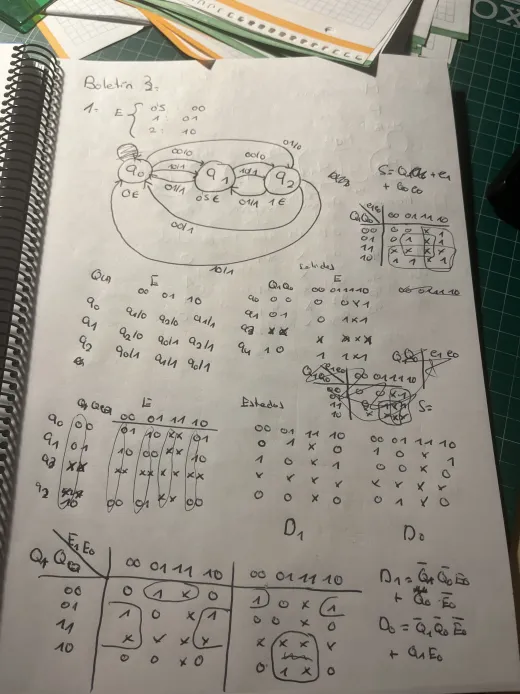 Boletín 3:
1=
E
0,5 : 00
1 : 01
2 : 10
01/0
00/0
00/0
10/1
10/1
q0
q1
q2
01/1
01/1
0€
0.5€
1€
00/1
10/1
S=
+ e1
+ e0e0
e1e0
Q1Q0
00 01 11 10
00 0 0 x 1
01 0 1 x 1
11 x x x x
10 1 1 x 1
E
00 01 10
q0 q1/0 q2/0 q1/1
q1 q2/0 q0/1 q2/1
q2 q0/1 q1/1 q0/1
Estados
Q1Q0
E
00 01 11 10
q0 0 0 0 0 x 1
q1 0 1 0 1 x 1
q3 x x x x x x
q2 1 0 1 1 x 1
S=
E
Estados
00 01 11 10
q0 00 01 10 xx 01
q1 01 10 00 xx 10
q3 xx xx xx xx xx
q2 10 00 01 xx 00
00 01 11 10
0 1 x 0
1 0 x 1
x x x x
0 0 x 0
00 01 11 10
1 0 x 1
0 0 x 0
x x x x
0 1 x 0
D1
D0
E1E0
Q1 Q0
00 01 11 10
00 0 1 x 0
01 1 0 x 1
11 x x x x
10 0 0 x 0
00 01 11 10
1 0 x 1
0 0 x 0
x x x x
0 1 x 0
D1 = Q̅1 Q̅0 E0
+ Q0 E̅0
D0 = Q̅1 Q̅0 E̅0
+ Q1 E0